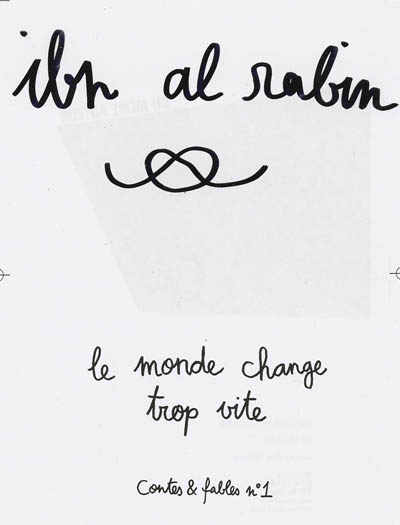 ibn al rabin
le monde change
trop vite
Contes & fables n°1